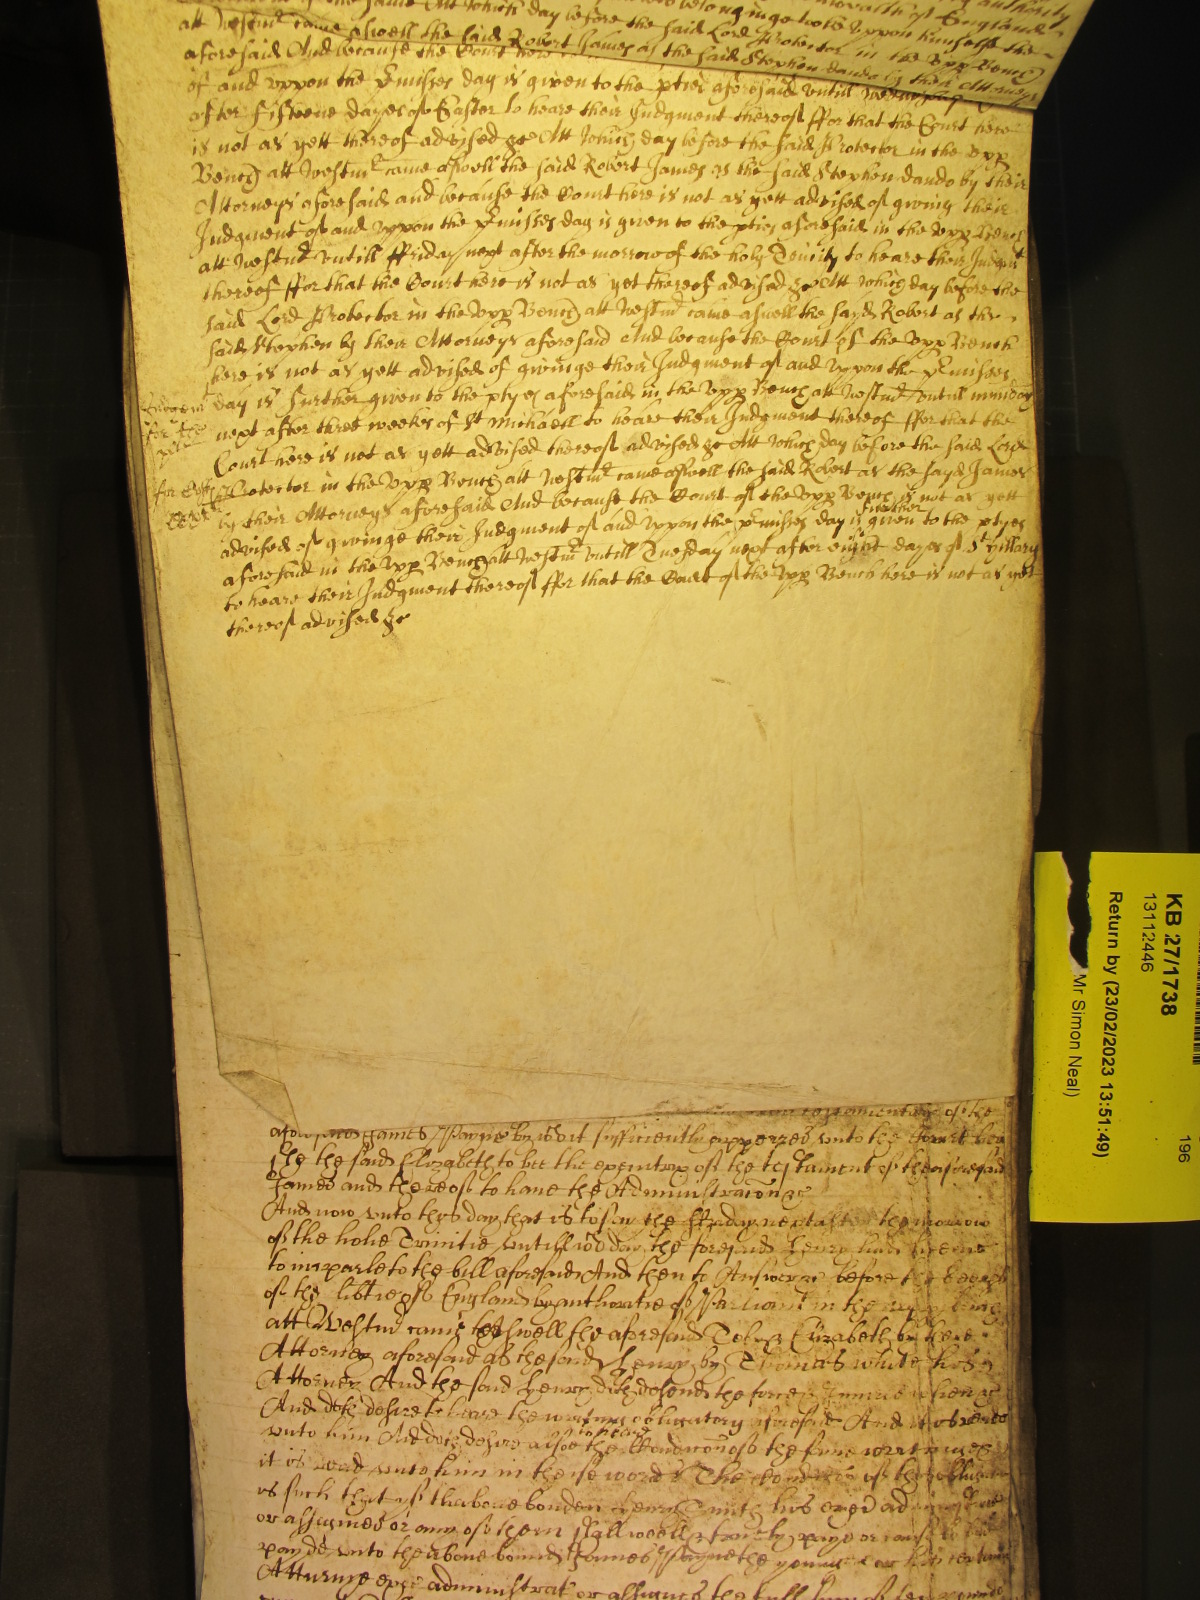 of the same Att which day before the said Lord Protector in the upp Bench
att Westm̃ came aswell the said Robert James as the said Stephen dando by their Attorneys
aforesaid And because the Court here
of and vppon the p̃misses day is given to the pties aforesaid vntill
after fifteene dayes of Easter to heare their Judgment thereof ffor that the Court here
is not as yett thereof advised &c Att which day before the said Protector in the upp
Bench att Westm̃ came aswell the said Robert James as the said Stephen dando by their
Attorneys aforesaid and because the Court here is not as yett advised of giving their
Judgment of and vppon the p̃misses day is given to the pties aforesaid in the upp Bench
att Westm̃ vntill ffriday next after the morrow of the holy Trinity to heare their Judgmt
thereof ffor that the Court here is not as yet thereof advised &c Att which day before the
said Lord Protector in the vpp Bench att Westm̃ came aswell the sayd Robert as the
said Stephen by their Attorneys aforesaid And because the Court of the vpp Bench
here is not as yett advised of givinge their Judgment of and vppon the p̃misses
day is further given to the ptyes aforesaid in the vpp Bench att Westm̃ vntill munday
next after three weekes of St Michaell to heare their Judgment thereof ffor that the
Court here is not as yett advised thereof advised &c Att which day before the said Lord
Protector in the vpp Bench att Westm̃ came aswell the said Robert as the sayd James
by their Attorneys aforesaid And because the Court of the vpp Bench is not as yett
advised of givinge their Judgment of and vppon the p̃misses day is further given to the ptyes
aforesaid in the vpp Bench att Westm̃ vntill Tuesday next after eight dayes of St Hillary
to heare their Judgment thereof ffor that the Court of the vpp Bench here is not as yet
thereof advised &c
testamentary of the
James Payne by it sufficiently appeareth vnto the Court here
the said Elizabeth to bee the executrix of the testament of the aforesaid
James and thereof to have the Administracon &c
And now vnto this day that is to say the ffryday next after the morrow
of the holie Trinitie vntill wch day the foresaid Henry had licence
to imparle to the bill aforesaid And then to Answere &c before the keepers
of the libtie of England by authoritie of Parliamt in the upper bench
att Westm̃ came aswell the aforesaid Elizabeth by there
Attorney aforesaid as the said Henry by Thomas White his
Attorney And the said Henry doth defend the force & Iniurie when &c
And doth desire to heare the writing obligatory aforesaid And it is read
vnto him And doth desire alsoe to heare the Condicon of the same writinge
it is read vnto him in these words The Condicon of this obligacon
is such that if the above bonden Henry his exec̃ adm̃
or assignes or any of them shall well & truely paye or cause to be
payd vnto the above bounde James Payne the younger or his certaine
Atturney exec̃ administrat̃ or assignes the full sum of
KB 27/1738
13112446
Return by (23/02/2023 13:51:49)
Mr Simon Neal)
196